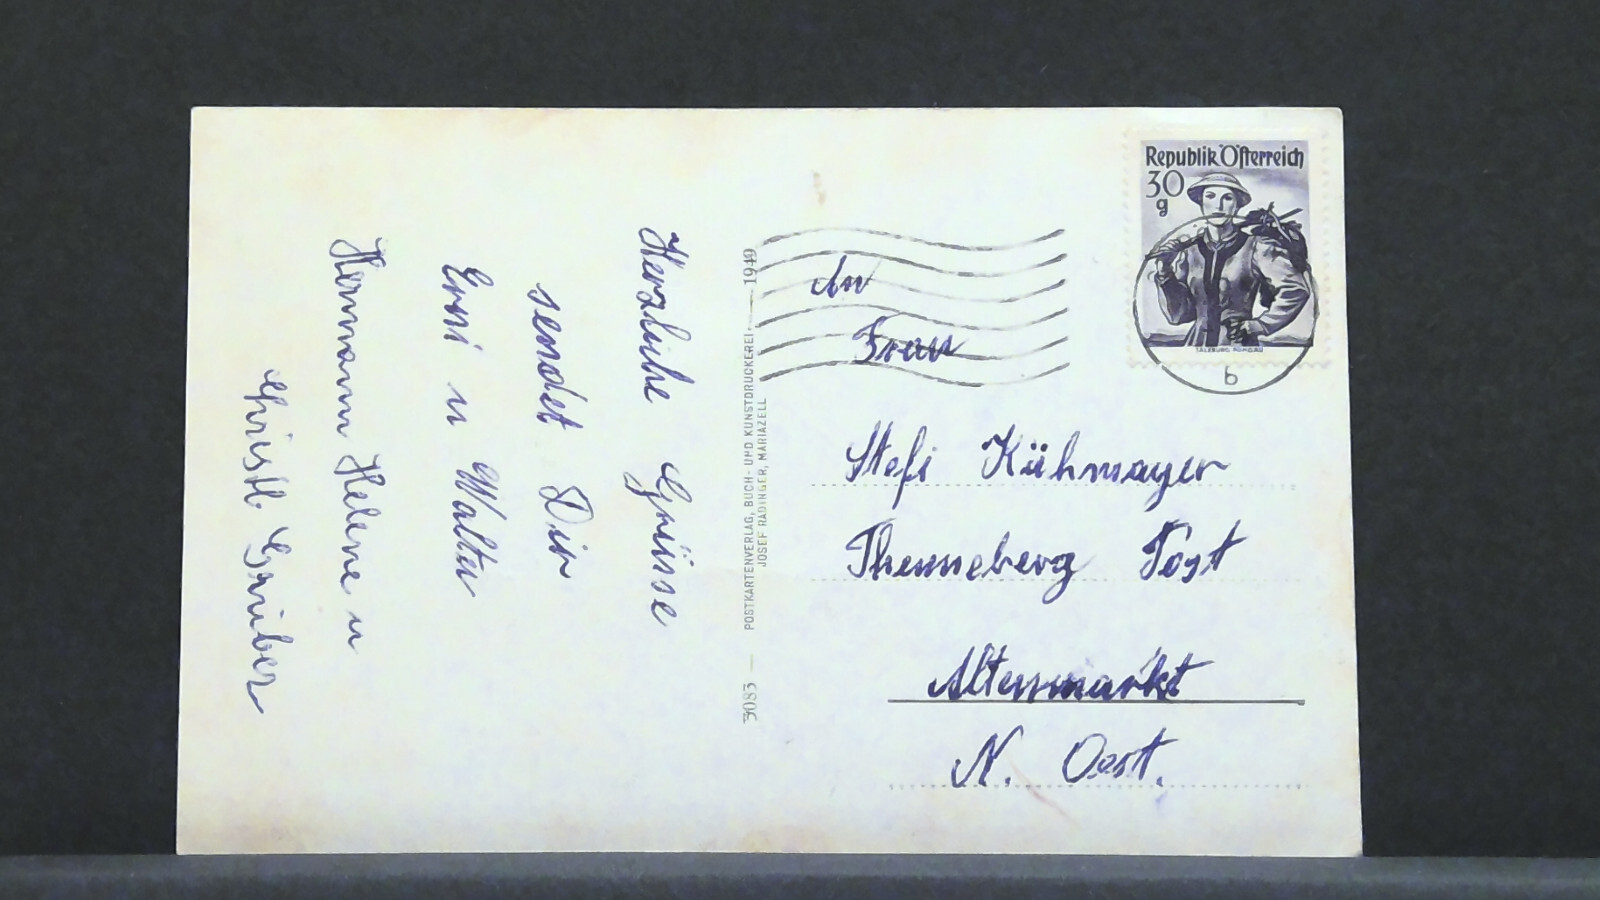 Herzliche Grüsse
sendet Dir
Erni u Walter
Hermann Helene u
Christl Gruber
3083 — POSTKARTENVERLAG, BUCH- UND KUNSTDRUCKEREI — 1949
JOSEF RADINGER, MARIAZELL
Republik Österreich
30
g
SALZBURG PONGAU
b
An
Frau
Stefi Kühmayer
Thenneberg Post
Altenmarkt
N. Oest.